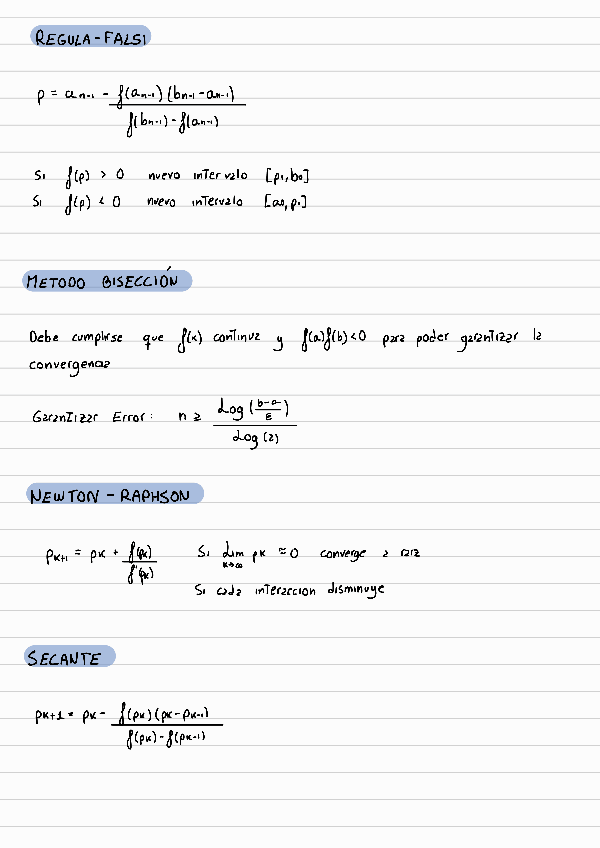 REGULA-FALSI
p = aₙ₋₁ - f(aₙ₋₁)(bₙ₋₁-aₙ₋₁) / f(bₙ₋₁)-f(aₙ₋₁)
Si f(p) > 0 nuevo intervalo [p₁,b₀]
Si f(p) < 0 nuevo intervalo [a₀,p₁]
METODO BISECCIÓN
Debe cumplirse que f(x) continua y f(a)f(b)<0 para poder garantizar la
convergencia
Garantizar Error: n ≥ Log((b-a)/ε) / Log(2)
NEWTON-RAPHSON
pₖ₊₁ = pₖ + f(pₖ)/f'(pₖ) Si Lim k→∞ pₖ ≈ 0 converge a raiz
Si cada interaccion disminuye
SECANTE
pₖ₊₁ = pₖ - f(pₖ)(pₖ-pₖ₋₁) / f(pₖ)-f(pₖ₋₁)